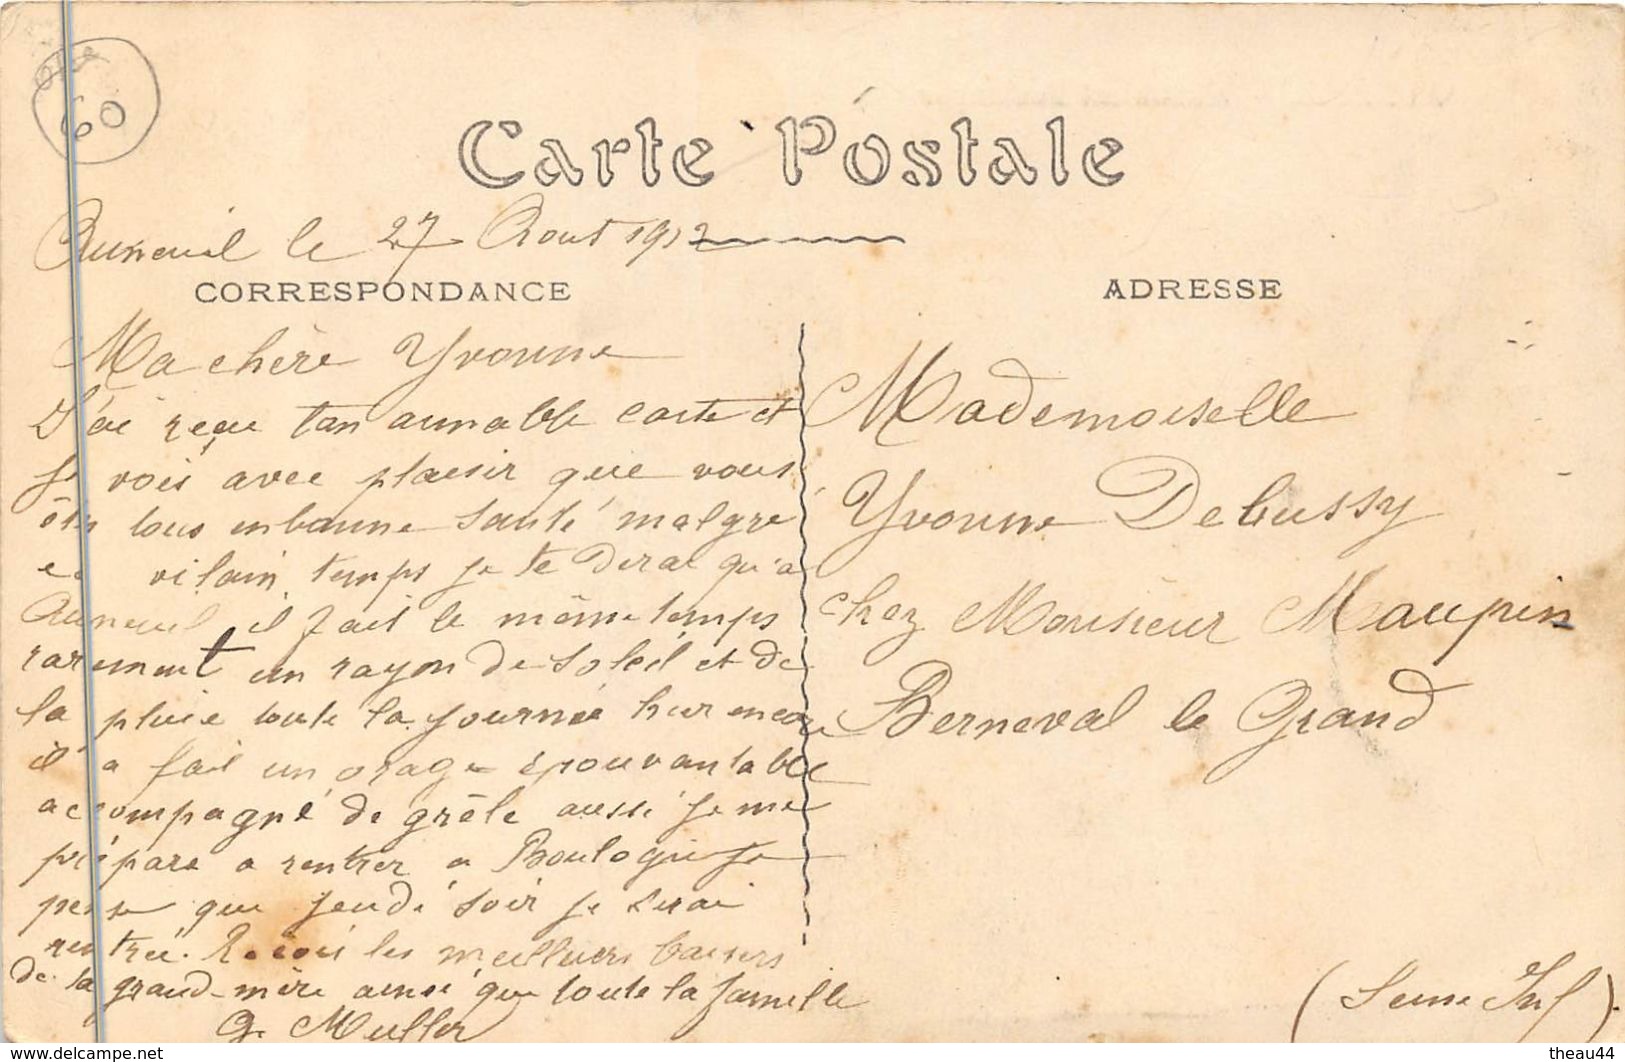 60
Carte Postale
Auneuil le 27 Aout 1912
CORRESPONDANCE
Ma chère Yvonne
J'ai reçu tan aimable carte et
je vois avec plaisir que vous
êtes tous en bonne santé malgré
ce vilain temps je te dirai qu'a
Auneuil il fait le même temps
rarement un rayon de soleil et de
la pluie toute la journée hier encore
il a fait un orage épouvantable
accompagné de grêle aussi je me
prépare a rentrer a Boulogne je
pense que jeudi soir je serai
rentrée. Reçois les meilleurs baisers
de ta grand-mère ainsi que toute la famille
G. Muller
ADRESSE
Mademoiselle
Yvonne Debussy
chez Monsieur Maupin
Berneval le Grand
(Seine Inf)
www.delcampe.net
theau44